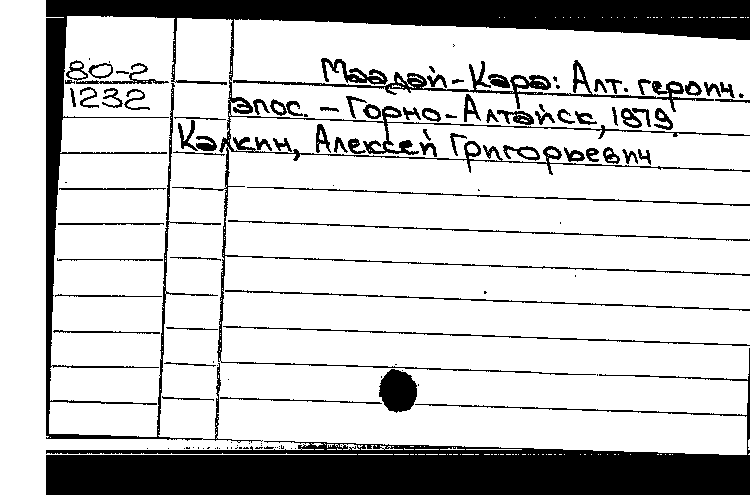 80-2 Маадай-Кара: Алт. героич.
1232 эпос. - Горно-Алтайск, 1979.
Калкин, Алексей Григорьевич